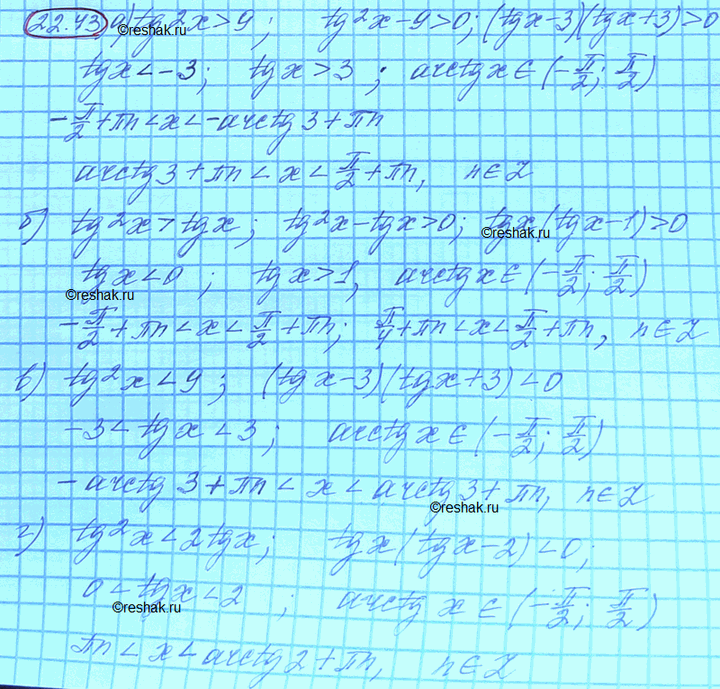 22.43 а) tg²x>9; tg²x-9>0; (tgx-3)(tgx+3)>0
©reshak.ru
tgx<-3; tgx>3; arctgx∈(-π/2; π/2)
-π/2+πn<x<-arctg3+πn
arctg3+πn<x<π/2+πn, n∈Z
б) tg²x>tgx; tg²x-tgx>0; tgx(tgx-1)>0
©reshak.ru
tgx<0; tgx>1, arctgx∈(-π/2; π/2)
©reshak.ru
-π/2+πn<x<π/2+πn; π/4+πn<x<π/2+πn, n∈Z
в) tg²x<9; (tgx-3)(tgx+3)<0
-3<tgx<3; arctgx∈(-π/2; π/2)
-arctg3+πn<x<arctg3+πn, n∈Z
©reshak.ru
г) tg²x<2tgx; tgx(tgx-2)<0;
0<tgx<2; arctgx∈(-π/2; π/2)
©reshak.ru
πn<x<arctg2+πn, n∈Z